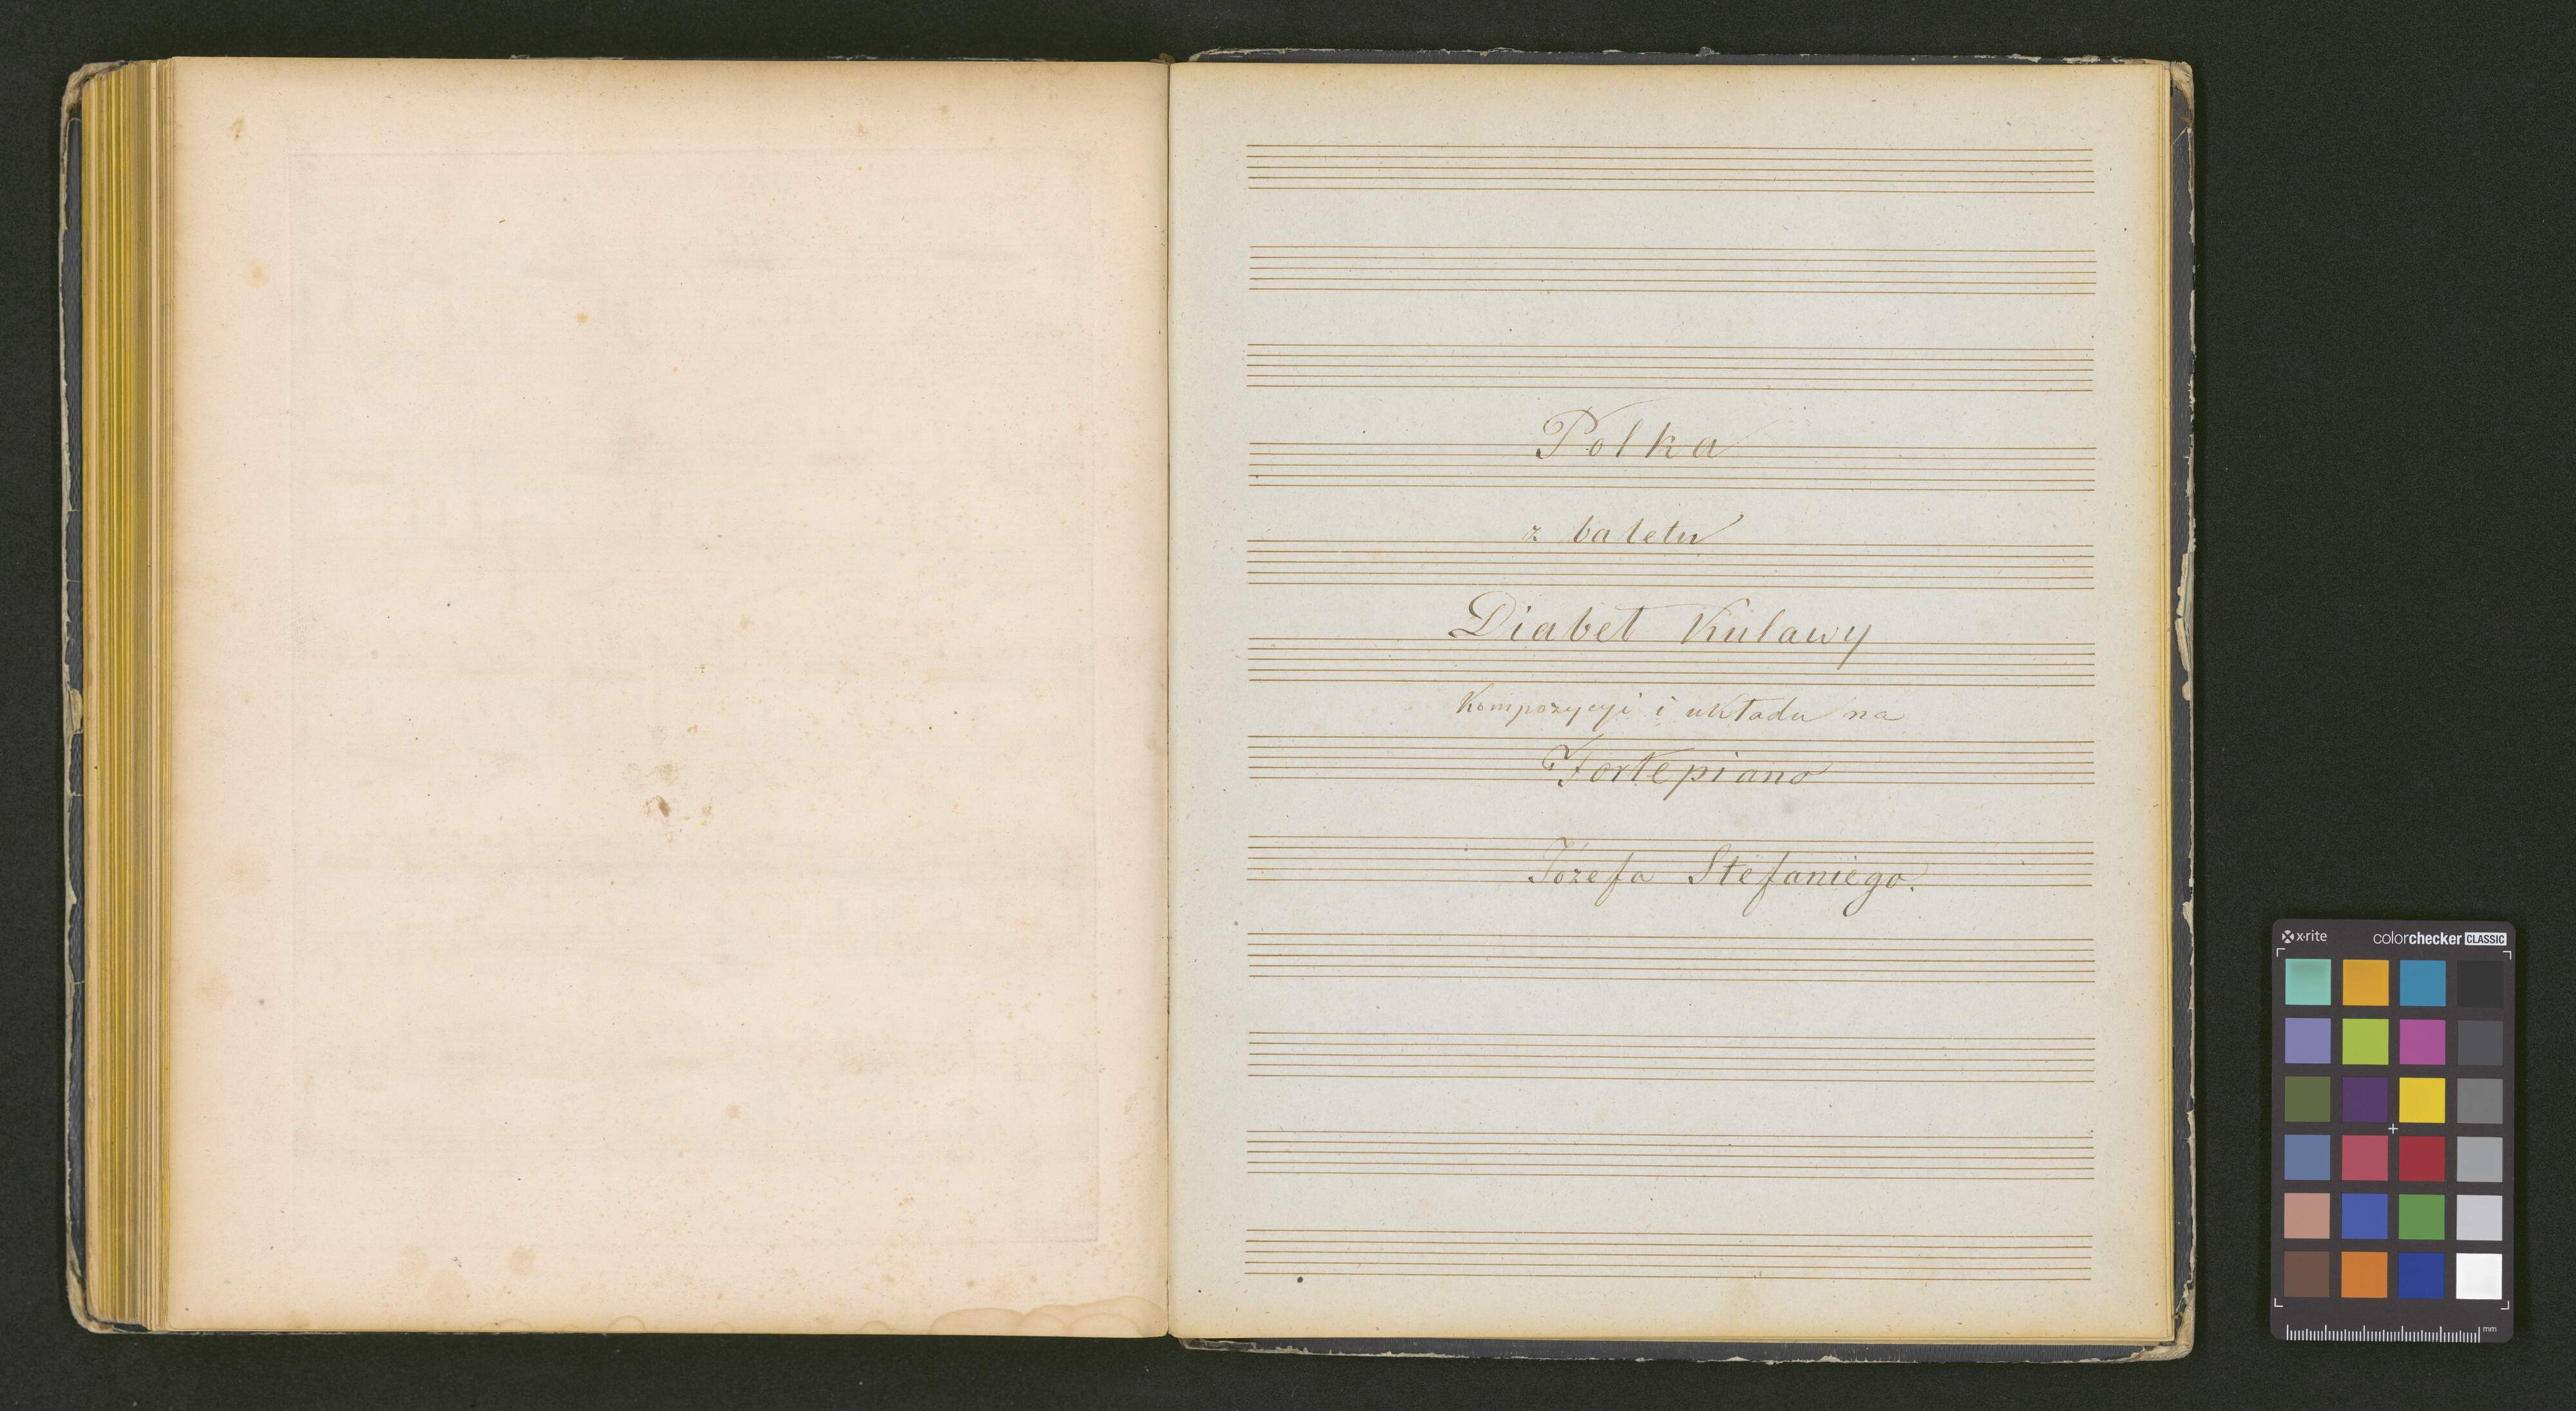 Polka
z baletu
Diabeł Kulawy
Kompozycyi i układu na
Fortepiano
Józefa Stefaniego.
x·rite colorchecker CLASSIC
mm